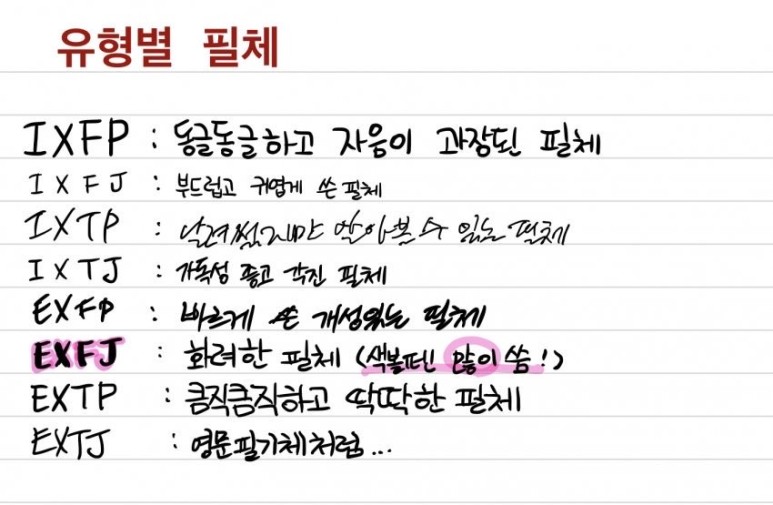 유형별 필체
IXFP : 동글동글하고 자음이 과장된 필체
IXFJ : 부드럽고 귀엽게 쓴 필체
IXTP : 날려썼지만 알아볼 수 있는 필체
IXTJ : 가독성 좋고 각진 필체
EXFP : 바르게 쓴 개성있는 필체
EXFJ : 화려한 필체 (색볼펜 많이 씀!)
EXTP : 큼직큼직하고 딱딱한 필체
EXTJ : 영문필기체처럼...